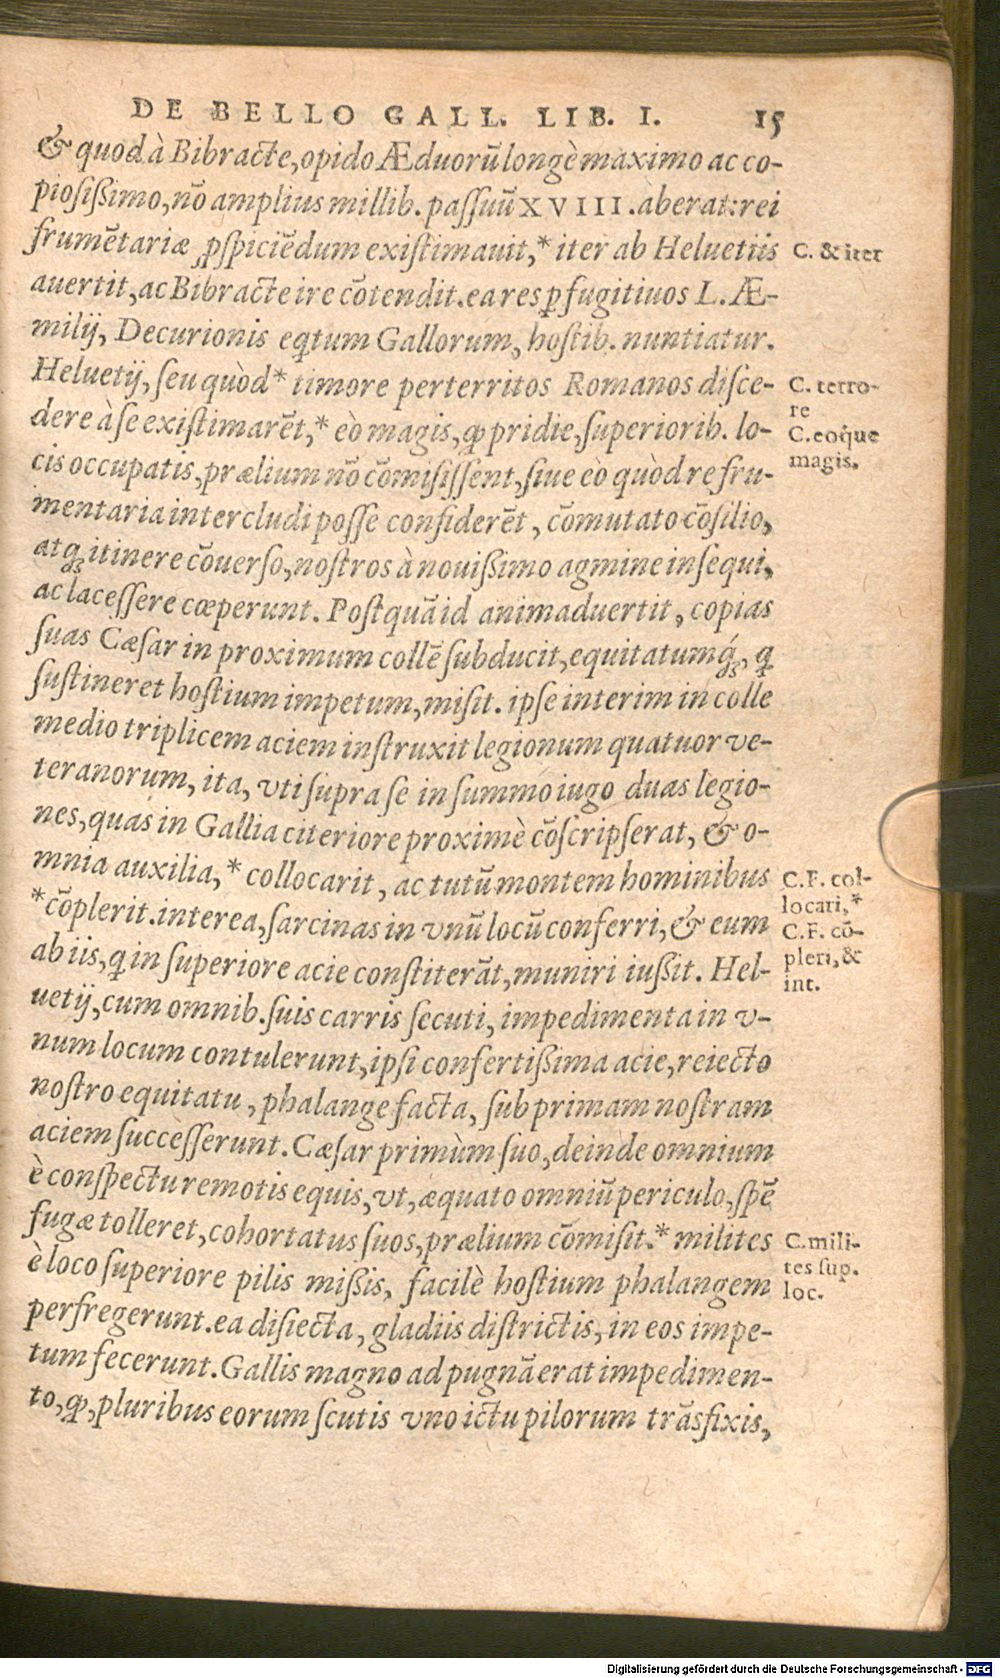 DE BELLO GALL. LIB. I. 15
& quod à Bibracte, opido Æduorū longè maximo ac co-
piosißimo, nō amplius millib. paſſuū XVIII. aberat: rei
frumētariæ ꝓſpiciēdum exiſtimauit, * iter ab Heluetiis
C. & iter
auertit, ac Bibracte ire cōtendit. ea res ꝑ fugitiuos L. Æ-
milij, Decurionis eqtum Gallorum, hoſtib. nuntiatur.
Heluetij, ſeu quòd * timore perterritos Romanos diſce-
C. terro-
re
dere à ſe exiſtimarēt, * eò magis, ꝙ pridie, ſuperiorib. lo-
C. eoq́ue
magis.
cis occupatis, prælium nō cōmiſiſſent, ſiue eò quòd re fru-
mentaria intercludi poſſe confiderēt, cōmutato cōſilio,
atqꝫ itinere cōuerſo, noſtros à nouißimo agmine inſequi,
ac laceſſere cœperunt. Poſtquā id animaduertit, copias
ſuas Cæſar in proximum collē ſubducit, equitatumq́ꝫ, q
ſuſtineret hoſtium impetum, miſit. ipſe interim in colle
medio triplicem aciem inſtruxit legionum quatuor ve-
teranorum, ita, vti ſupra ſe in ſummo iugo duas legio-
nes, quas in Gallia citeriore proximè cōſcripſerat, & o-
mnia auxilia, * collocarit, ac tutū montem hominibus
C.F. col-
locari, *
*cōplerit. interea, ſarcinas in vnū locū conferri, & eum
C.F. cō-
pleri, &
int.
ab iis, q in ſuperiore acie conſtiterāt, muniri iußit. Hel-
uetij, cum omnib. ſuis carris ſecuti, impedimenta in v-
num locum contulerunt, ipſi confertißima acie, reiecto
noſtro equitatu, phalange facta, ſub primam noſtram
aciem ſucceſſerunt. Cæſar primùm ſuo, deinde omnium
è conſpectu remotis equis, vt, æquato omniū periculo, ſpē
fugæ tolleret, cohortatus ſuos, prælium cōmiſit. * milites
C. mili-
tes ſup.
loc.
è loco ſuperiore pilis mißis, facilè hoſtium phalangem
perfregerunt. ea diſiecta, gladiis diſtrictis, in eos impe-
tum fecerunt. Gallis magno ad pugnā erat impedimen-
to, ꝙ, pluribus eorum ſcutis vno ictu pilorum trāsfixis,
Digitalisierung gefördert durch die Deutsche Forschungsgemeinschaft - DFG